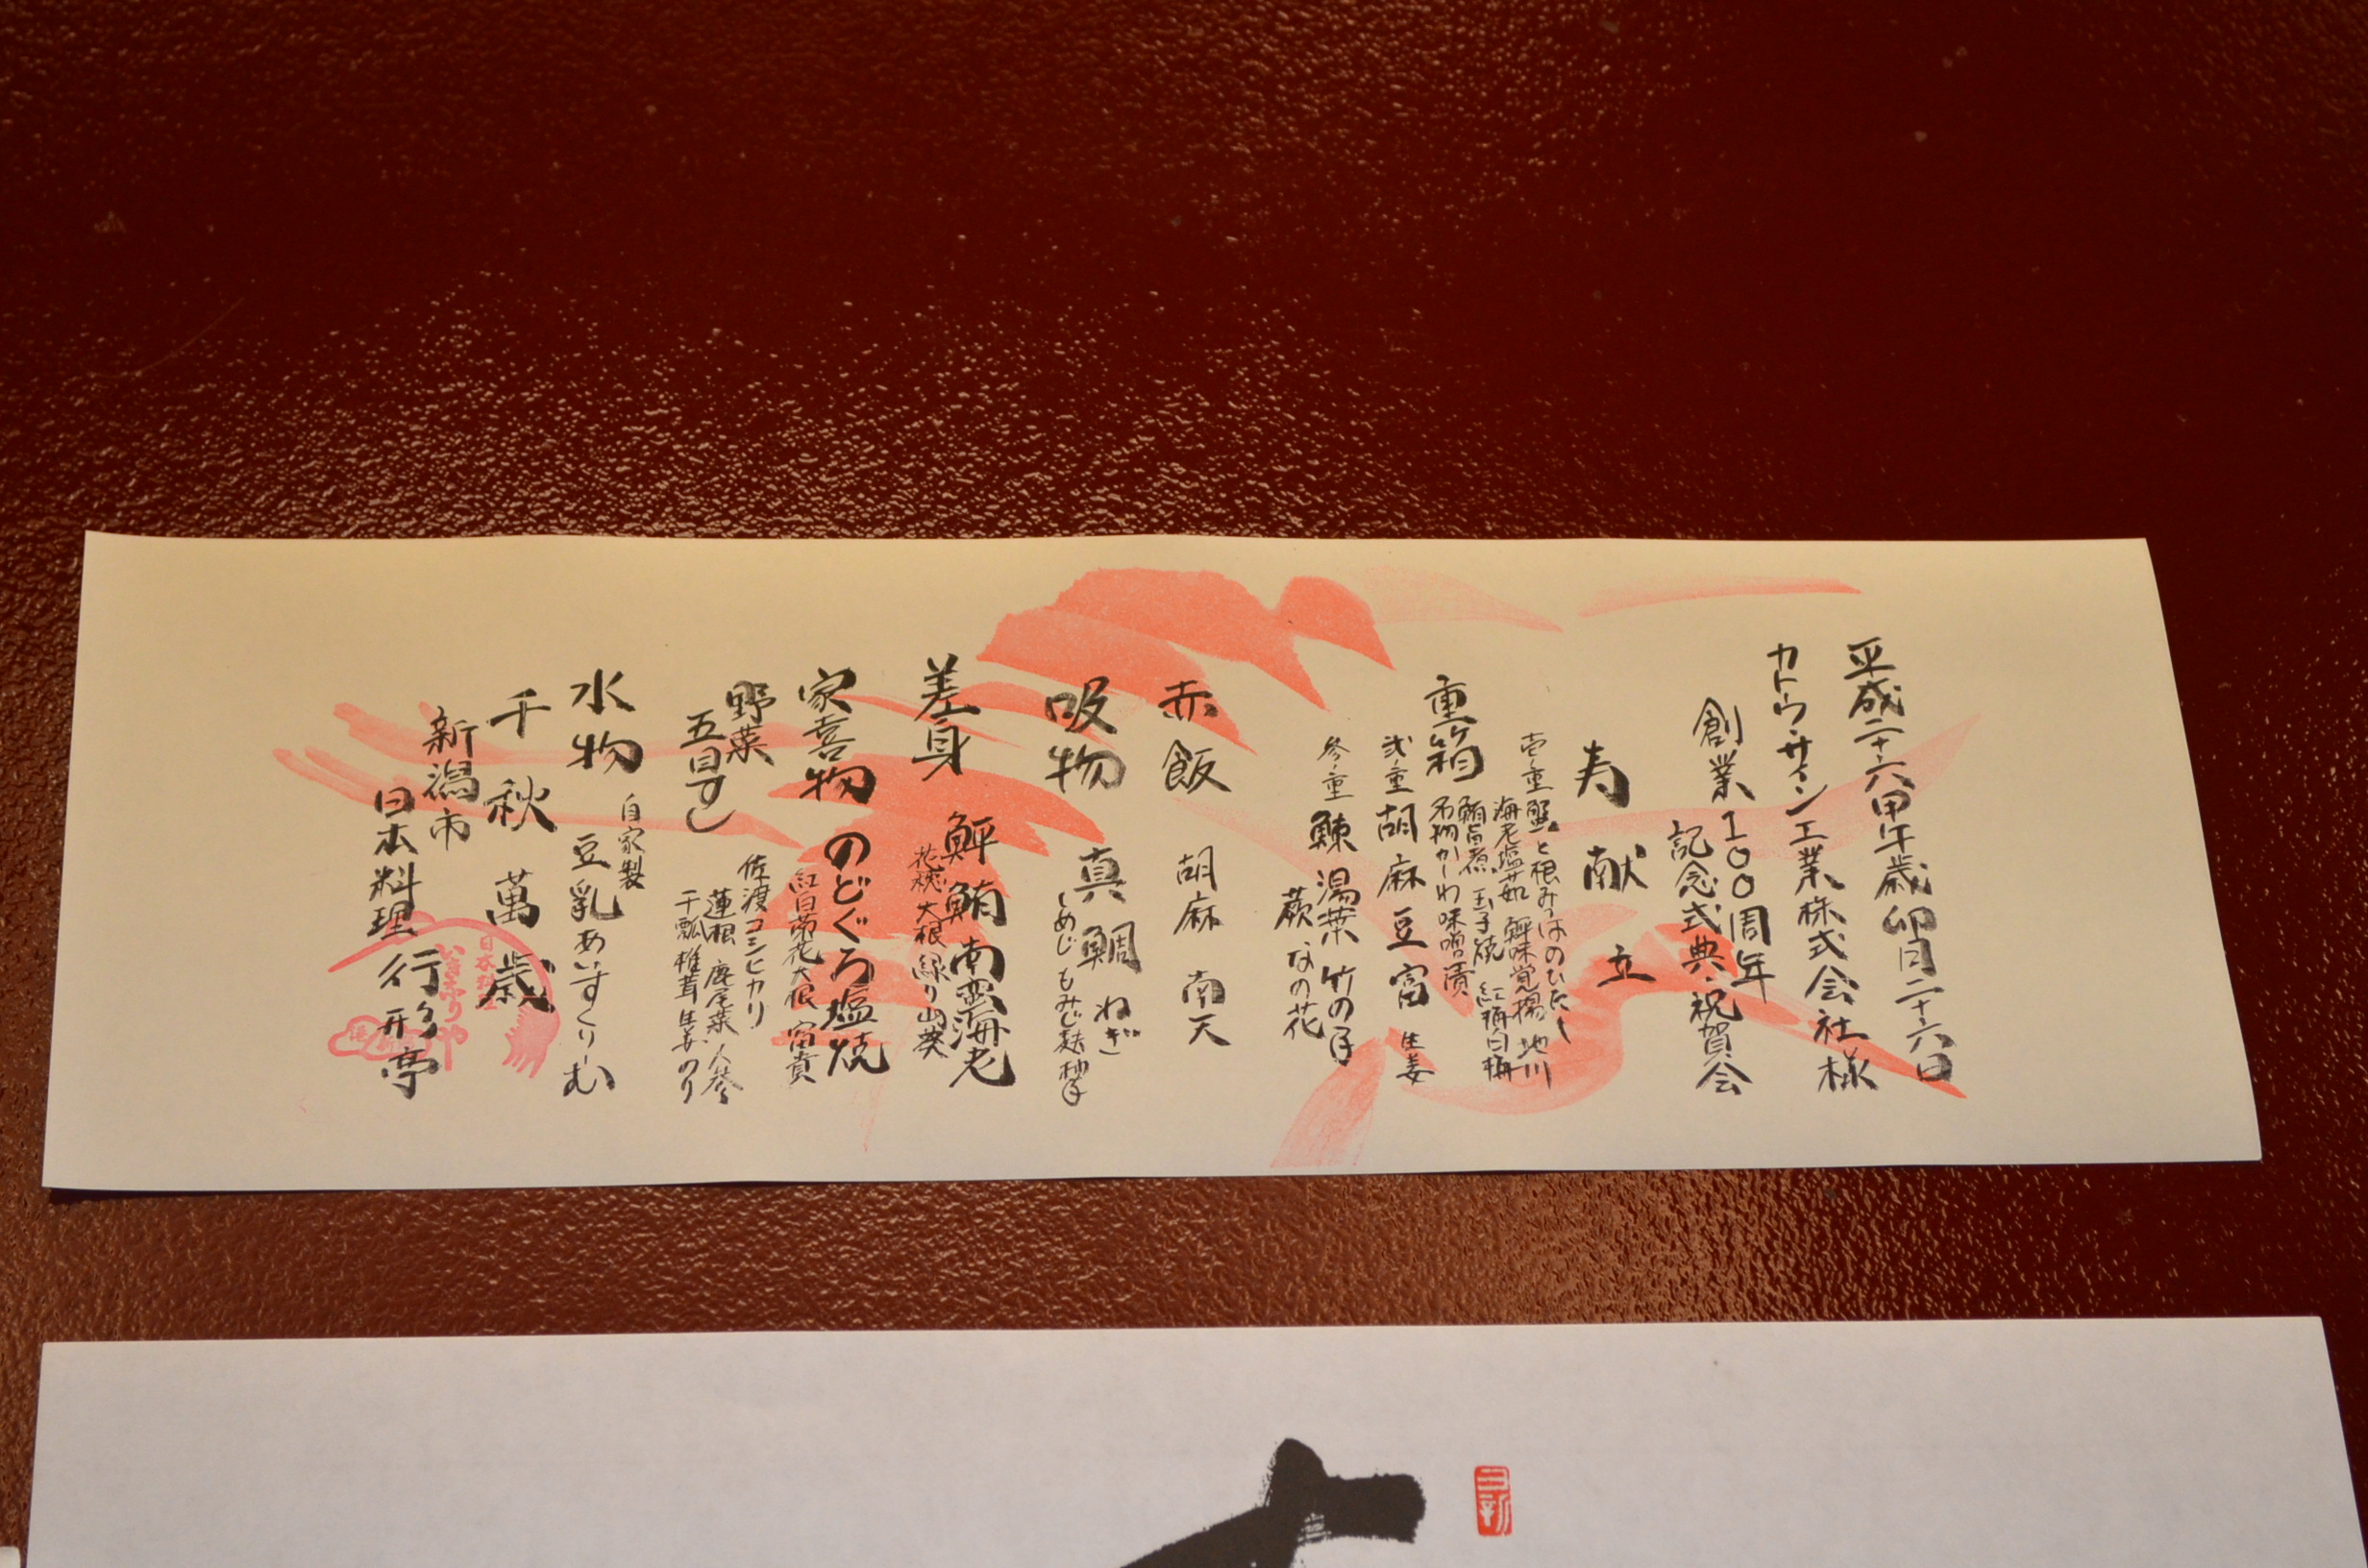 平成二十六甲午歳卯月二十六日
カトウサイン工業株式会社様
創業100周年
記念式典・祝賀会
寿献立
重箱
壱の重 蟹と根みつばのひたし
海老塩茹 鮃味覚揚 地川
鮪旨煮 玉子焼 紅梅白梅
名物かしわ味噌漬
弐の重 胡麻豆富 生姜
参の重 鰊 湯葉 竹の子
蕨 なの花
赤飯 胡麻 南天
吸物 真鯛 ねぎ
しめじ もみじ麸 柚子
差身 鮃 鮪 南蛮海老
花穂 大根 縁り 山葵
家喜物 のどぐろ塩焼
紅白菊花大根 富貴
野菜
五目すし 佐渡コシヒカリ
蓮根 鹿尾菜 人参
干瓢 椎茸 生姜 のり
水物 自家製
豆乳あいすくりーむ
千秋萬歳
新潟市
日本料理 行形亭
いきなりや